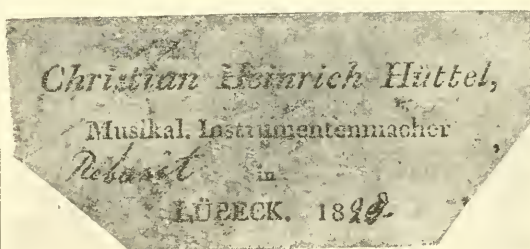 Christian Heinrich Hüttel,
Musikal. Instrumentenmacher
in
LÜBECK. 18